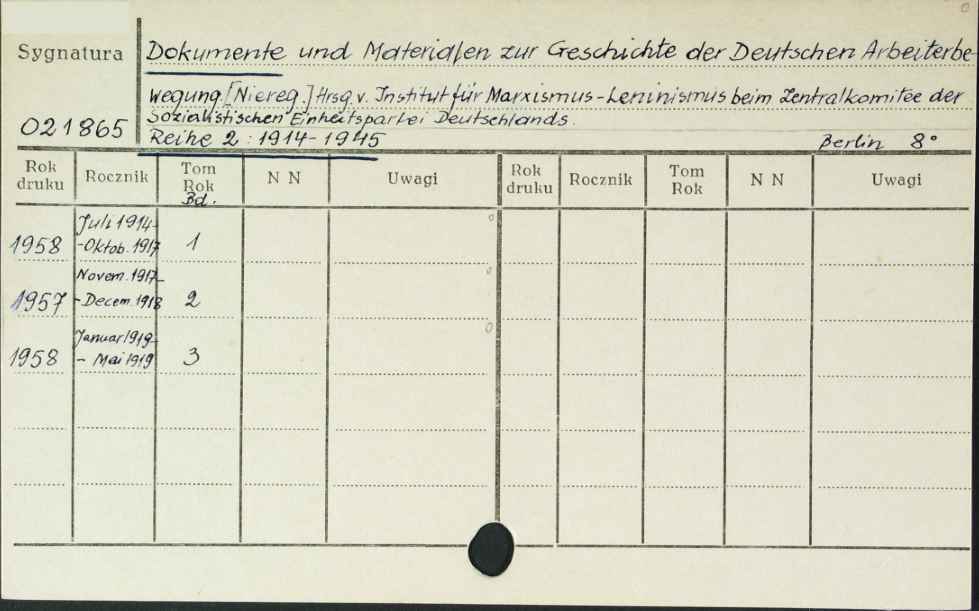 Sygnatura
021865
Dokumente und Materialen zur Geschichte der Deutschen Arbeiterbe
wegung. [Niereg.] Hrsg. v. Institut für Marxismus-Leninismus beim Zentralkomitee der
Sozialistischen Einheitspartei Deutschlands.
Reihe 2: 1914-1945 Berlin 8°
Rok druku Rocznik Tom Rok N N Uwagi Rok druku Rocznik Tom Rok N N Uwagi
Bd.
Juli 1914-
1958 -Oktob. 1917 1
Novem. 1917-
1957 -Decem. 1918 2
Januar 1919-
1958 - Mai 1919 3